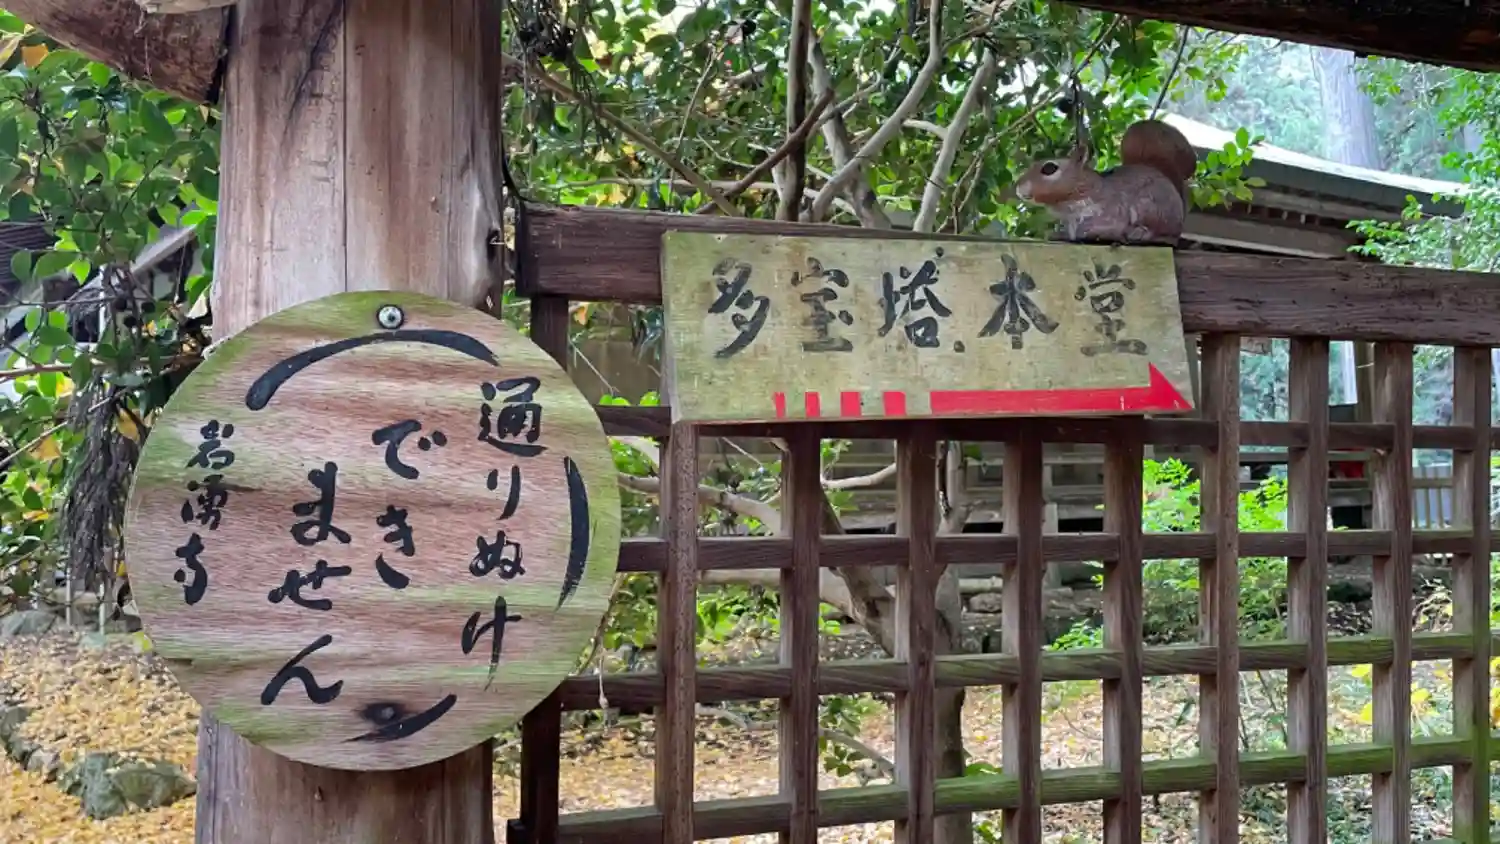 通りぬけ
でき
ません
岩湧寺
多宝塔.本堂